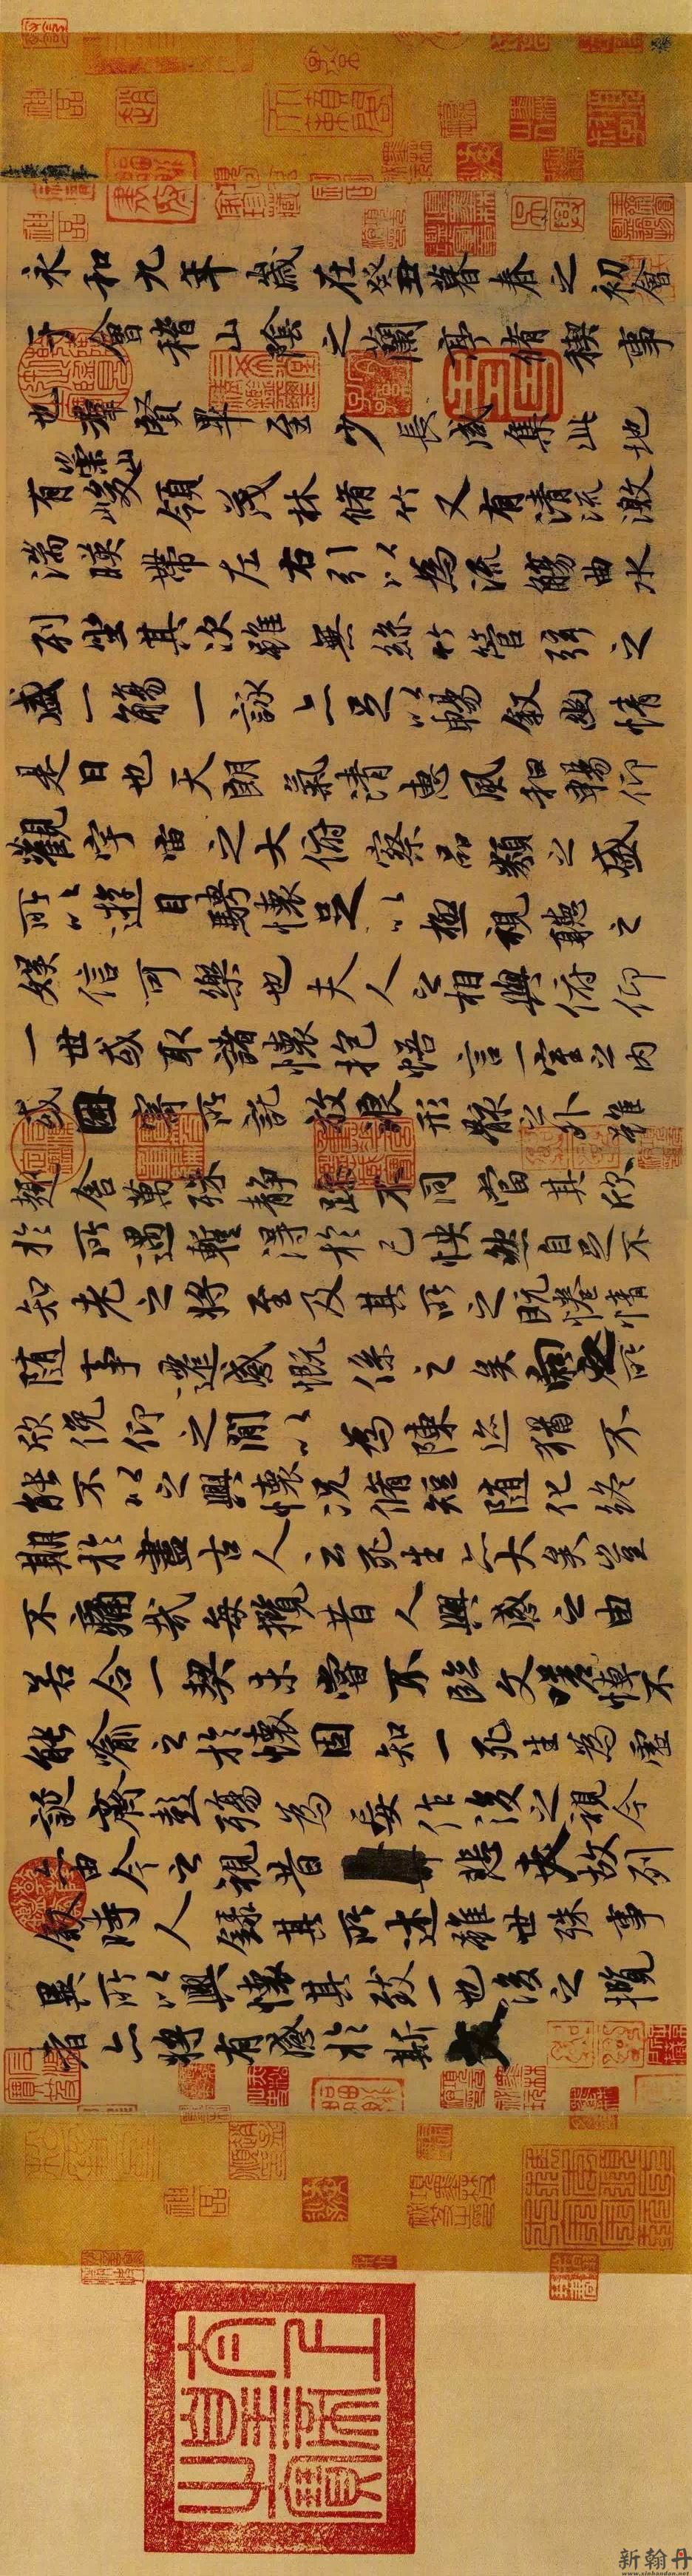 永和九年歲在癸丑暮春之初會
于會稽山陰之蘭亭脩稧事
也羣賢畢至少長咸集此地
有崇山峻領茂林脩竹又有清流激
湍暎帶左右引以為流觴曲水
列坐其次雖無絲竹管弦之
盛一觴一詠亦足以暢敘幽情
是日也天朗氣清惠風和暢仰
觀宇宙之大俯察品類之盛
所以遊目騁懷足以極視聽之
娛信可樂也夫人之相與俯仰
一世或取諸懷抱悟言一室之內
或因寄所託放浪形骸之外雖
趣舍萬殊靜躁不同當其欣
於所遇蹔得於己怏然自足不
知老之將至及其所之既惓情
隨事遷感慨係之矣向之所
欣俛仰之閒以為陳迹猶不
能不以之興懷況脩短隨化終
期於盡古人云死生亦大矣豈
不痛哉每攬昔人興感之由
若合一契未嘗不臨文嗟悼不
能喻之於懷固知一死生為虛
誕齊彭殤為妄作後之視今
亦由今之視昔悲夫故列
敘時人錄其所述雖世殊事
異所以興懷其致一也後之攬
者亦將有感於斯文
太上皇帝之寶
新翰丹